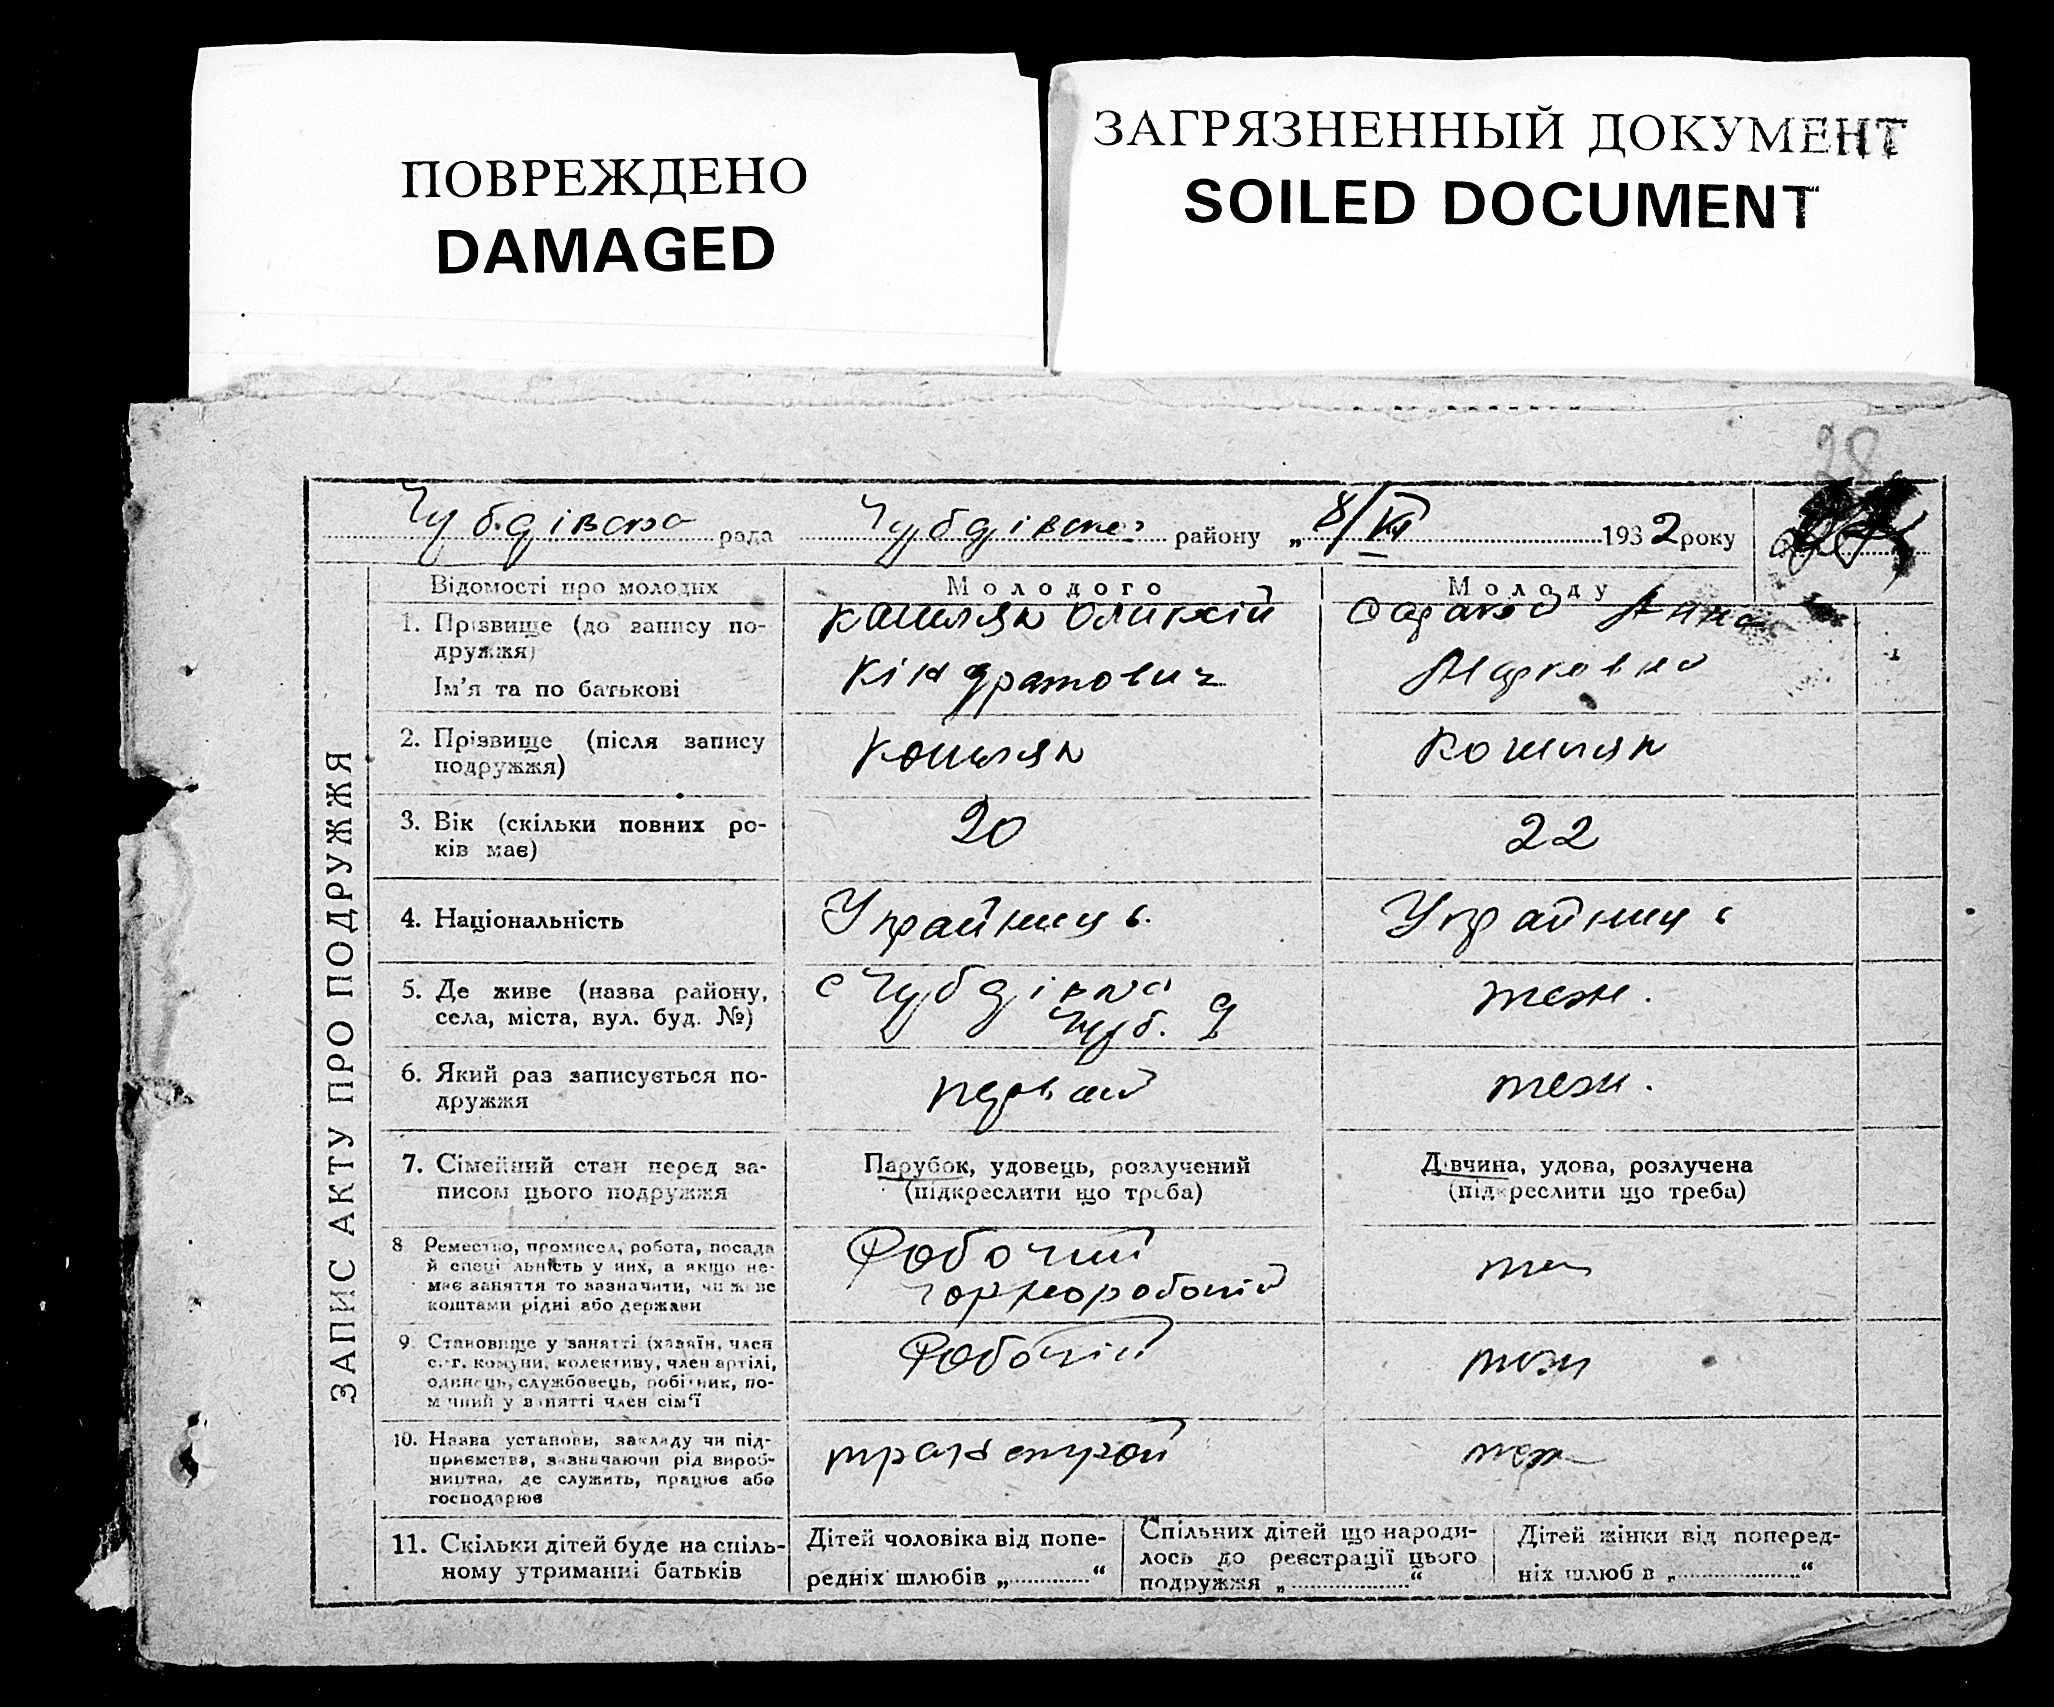 ПОВРЕЖДЕНО
DAMAGED
ЗАГРЯЗНЕННЫЙ ДОКУМЕНТ
SOILED DOCUMENT
28
Чубдівска рада Чубдівског району „8/VII 1932 року
ЗАПИС АКТУ ПРО ПОДРУЖЖЯ
Відомості про молодих
Молодого
Молоду
1. Прізвище (до запису по-
дружжя)
Ім'я та по батькові
Кошляк
Кіндратович
Анна
Марковна
2. Прізвище (після запису
подружжя)
Кошляк
Кошляк
3. Вік (скільки повних ро-
ків має)
20
22
4. Національність
Украйниць.
Украйниць
5. Де живе (назва району,
села, міста, вул. буд. №)
с Чубдівка
Чуб.
теж.
6. Який раз записується по-
дружжя
первий
теж.
7. Сімейний стан перед за-
писом цього подружжя
Парубок, удовець, розлучений
(підкреслити що треба)
Дівчина, удова, розлучена
(підкреслити що треба)
8 Ремество, промисел, робота, посада
й спеціальність у них, а якщо не-
має заняття то зазначити, чи живе
коштами рідні або держави
Робочий
чорноробочій
теж
9. Становище у занятті (хазяїн, член
с.-г. комуни, колективу, член артілі,
одинець, службовець, робітник, по-
мічний у занятті член сім'ї
Робочій
теж
10. Назва установи, закладу чи під-
приємства, зазначаючи рід вироб-
ництва, де служить, працює або
господарює
теж
11. Скільки дітей буде на спіль-
ному утриманні батьків
Дітей чоловіка від попе-
редніх шлюбів „ “
Спільних дітей що народи-
лось до реєстрації цього
подружжя „ “
Дітей жінки від поперед-
ніх шлюбів „ “